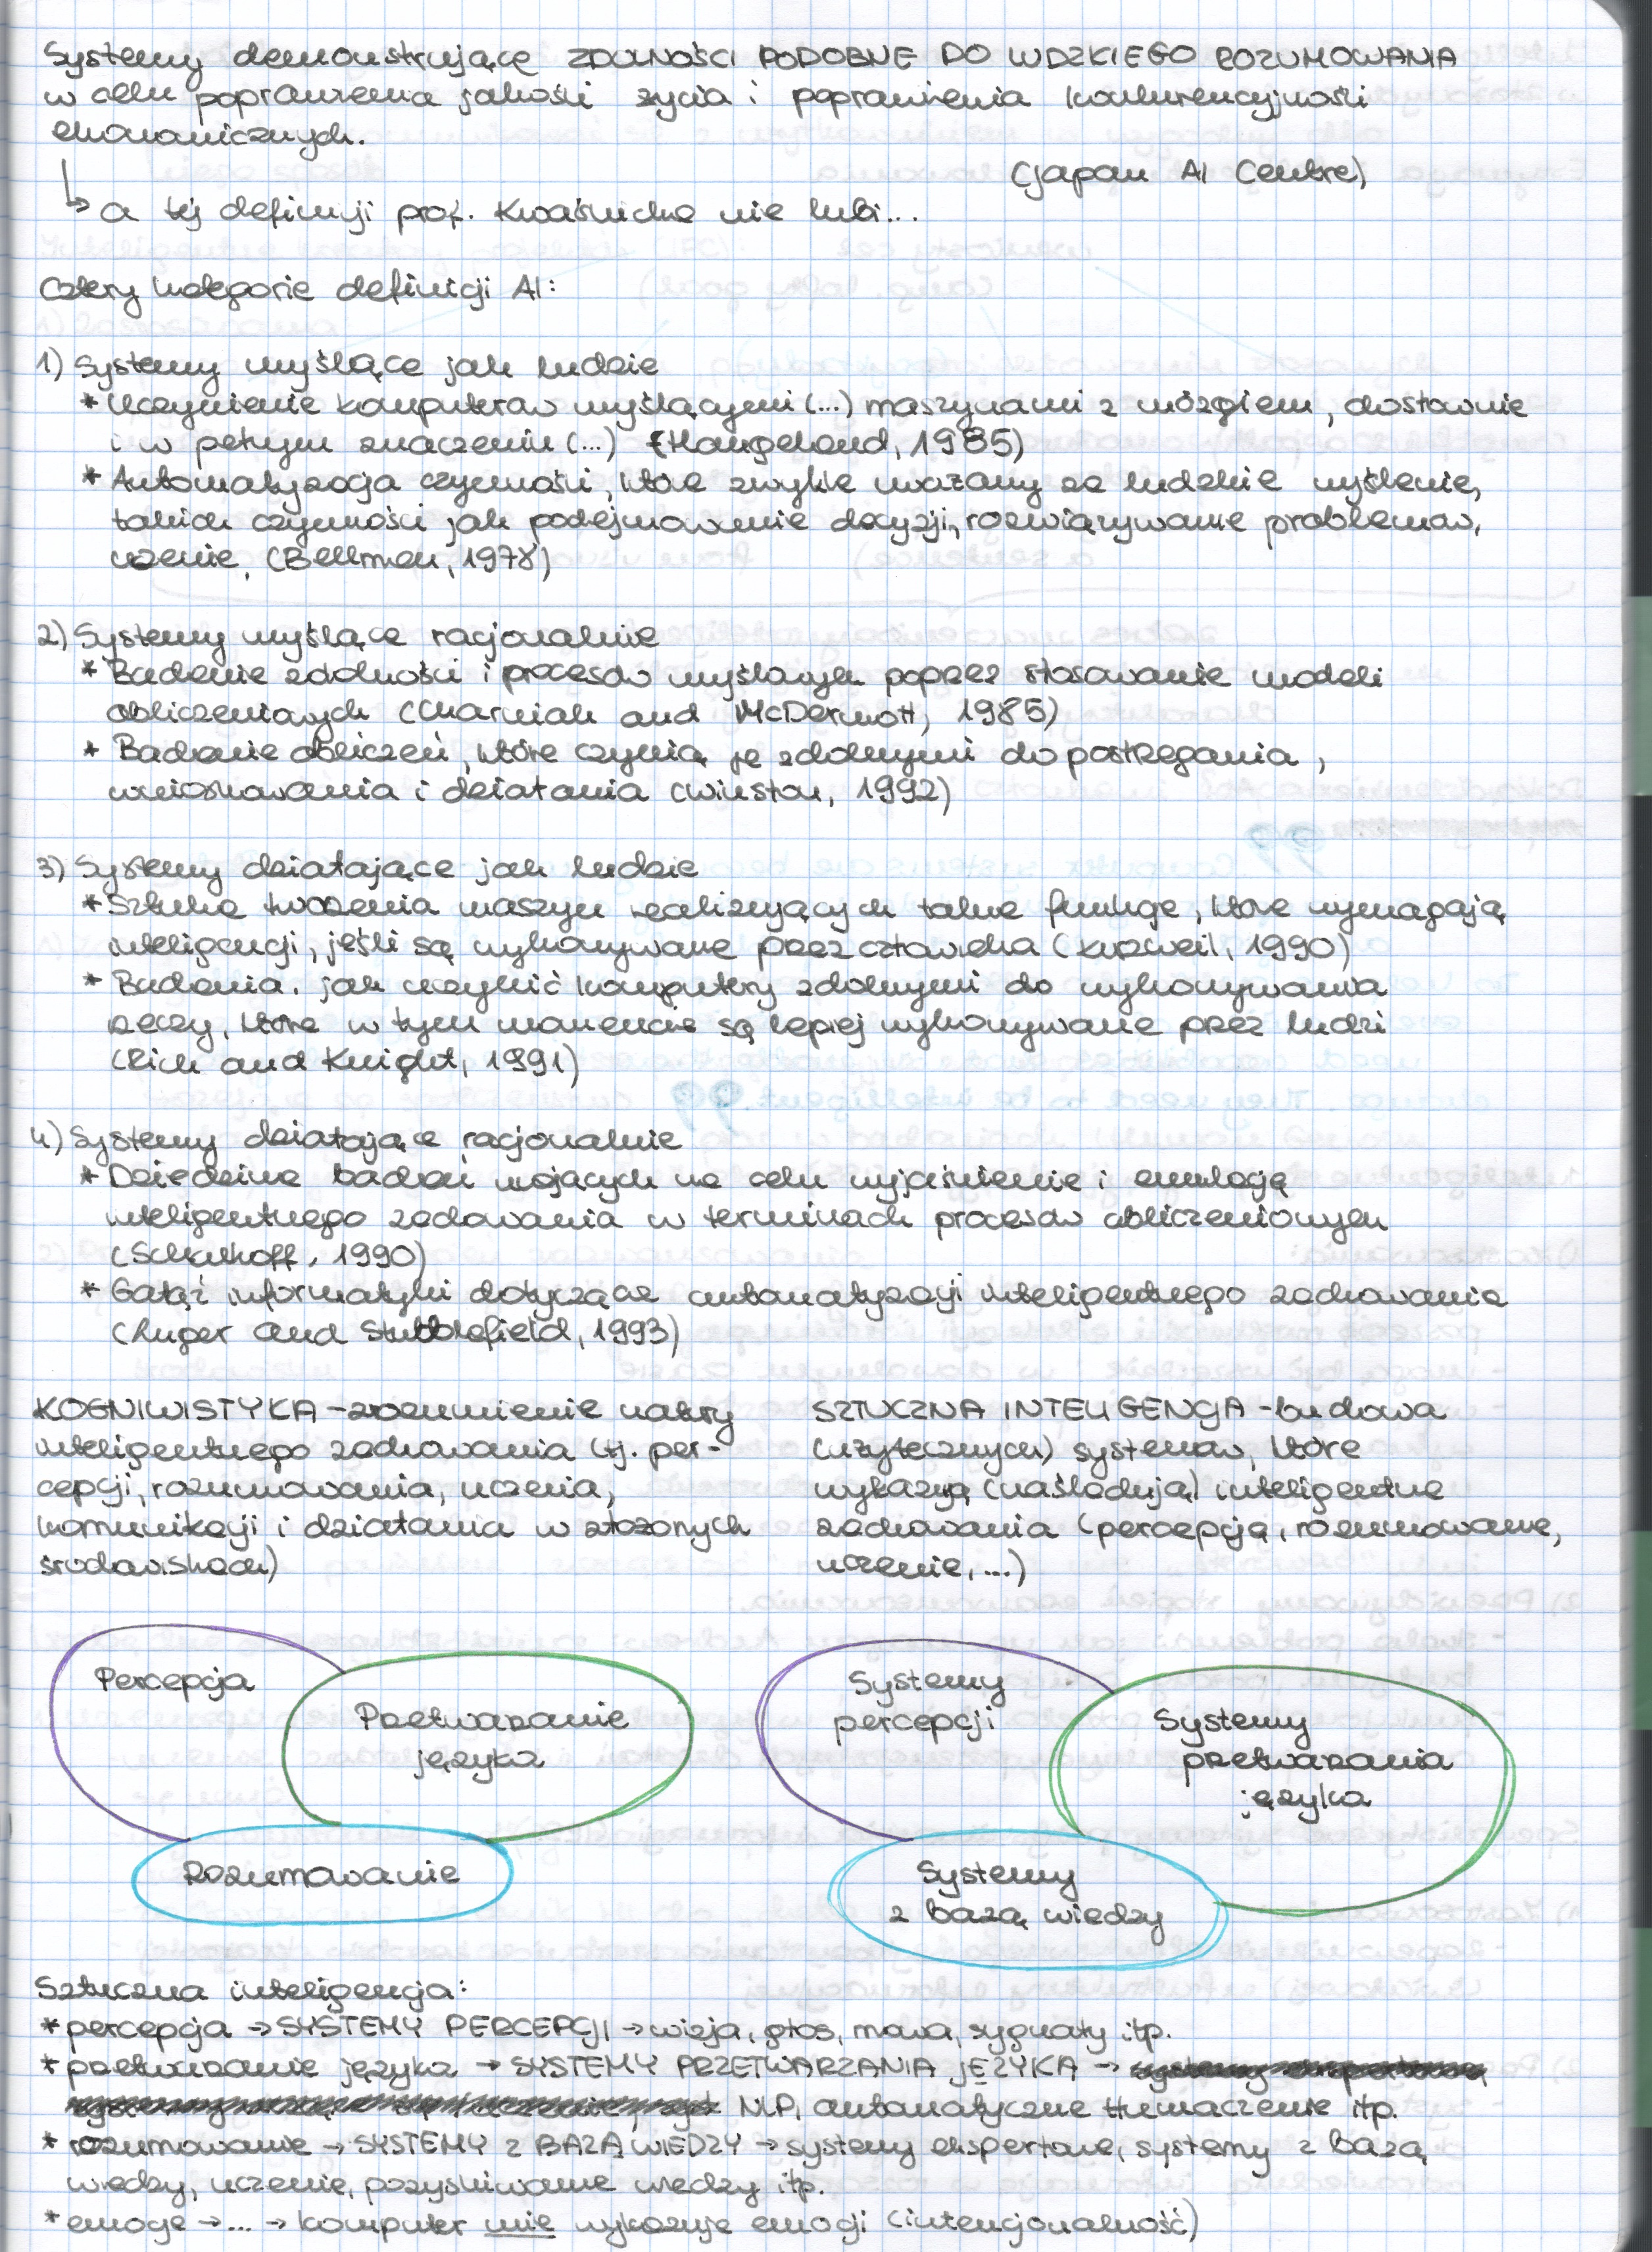 Systemy demonstrujące ZDOLNOŚCI PODOBNE DO LUDZKIEGO ROZUMOWANIA
w celu poprawienia jakości życia i poprawienia konkurencyjności
ekonomicznych.
(Japan AI Centre)
↳ a tej definicji prof. Kwaśnicka nie lubi...
Cztery kategorie definicji AI:
1) Systemy myślące jak ludzie
* Uczynienie komputerów myślącymi (...) maszynami z mózgiem, dosłownie
i w pełnym znaczeniu (...) (Haugeland, 1985)
* Automatyzacja czynności, które zwykle uważamy za ludzkie myślenie,
takich czynności jak podejmowanie decyzji, rozwiązywanie problemów,
uczenie. (Bellman, 1978)
2) Systemy myślące racjonalnie
* Badanie zdolności i procesów myślowych poprzez stosowanie modeli
obliczeniowych (Charniak and McDermott, 1985)
* Badanie obliczeń, które czynią je zdolnymi do postrzegania,
wnioskowania i działania (Winston, 1992)
3) Systemy działające jak ludzie
* Sztuka tworzenia maszyn realizujących takie funkcje, które wymagają
inteligencji, jeśli są wykonywane przez człowieka (Kurzweil, 1990)
* Badania, jak uczynić komputery zdolnymi do wykonywania
rzeczy, które w tym momencie są lepiej wykonywane przez ludzi
(Rich and Knight, 1991)
4) Systemy działające racjonalnie
* Dziedzina badań mających na celu wyjaśnienie i emulację
inteligentnego zachowania w terminach procesów obliczeniowych
(Schalkoff, 1990)
* Gałąź informatyki dotycząca automatyzacji inteligentnego zachowania
(Luger and Stubblefield, 1993)
KOGNIWISTYKA - zrozumienie natury
inteligentnego zachowania (tj. per-
cepcji, rozumowania, uczenia,
komunikacji i działania w złożonych
środowiskach)
SZTUCZNA INTELIGENCJA - budowa
(użytecznych) systemów, które
wykazują (naśladują) inteligentne
zachowania (percepcja, rozumowanie,
uczenie, ...)
Percepcja
Przetwarzanie
języka
Rozumowanie
Systemy
percepcji
Systemy
przetwarzania
języka
Systemy
z bazą wiedzy
Sztuczna inteligencja:
* percepcja → SYSTEMY PERCEPCJI → wizja, głos, mowa, sygnały itp.
* przetwarzanie języka → SYSTEMY PRZETWARZANIA JĘZYKA →
NLP, automatyczne tłumaczenie itp.
* rozumowanie → SYSTEMY Z BAZĄ WIEDZY → systemy ekspertowe, systemy z bazą
wiedzy, uczenie, pozyskiwanie wiedzy itp.
* emocje → ... → komputer nie wykazuje emocji (intencjonalność)